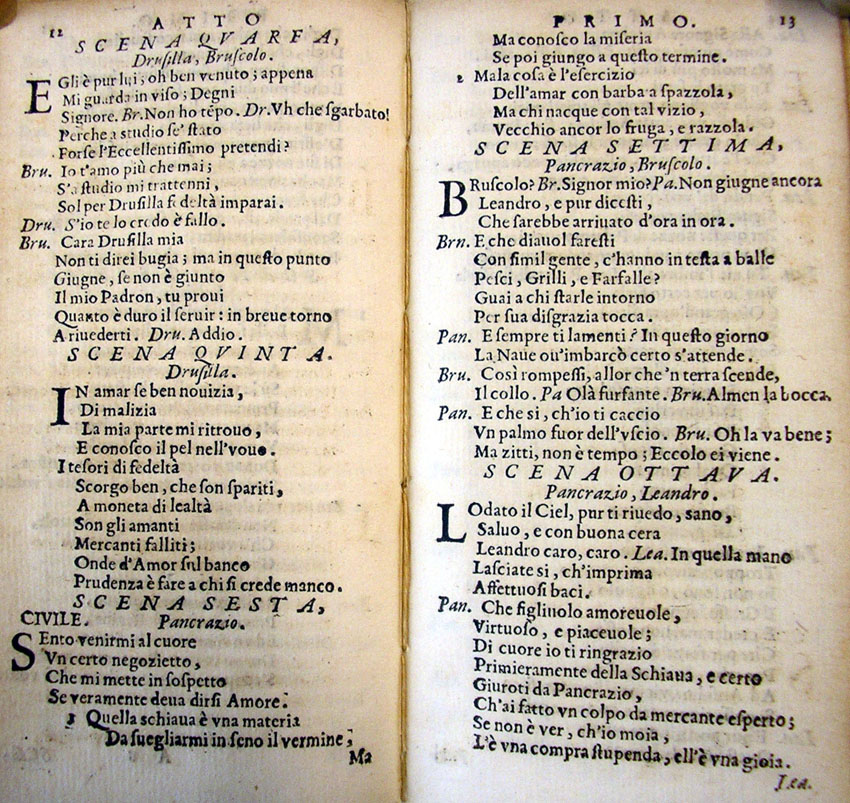 12
ATTO
SCENA QVARTA,
Drusilla, Bruscolo.
EGli è pur lui; oh ben venuto; appena
Mi guarda in viso; Degni
Signore. Br. Non ho tẽpo. Dr. Vh che sgarbato!
Perche a studio se' stato
Forse l'Eccellentissimo pretendi?
Bru. Io t'amo più che mai;
S'a studio mi trattenni,
Sol per Drusilla fideltà imparai.
Dru. S'io te lo credo è fallo.
Bru. Cara Drusilla mia
Non ti direi bugia; ma in questo punto
Giugne, se non è giunto
Il mio Padron, tu proui
Quanto è duro il seruir: in breue torno
A riuederti. Dru. Addio.
SCENA QVINTA.
Drusilla.
IN amar se ben nouizia,
Di malizia
La mia parte mi ritrouo,
E conosco il pel nell'vouo.
I tesori di fedeltà
Scorgo ben, che son spariti,
A moneta di lealtà
Son gli amanti
Mercanti falliti;
Onde d'Amor sul banco
Prudenza è fare a chi si crede manco.
SCENA SESTA,
CIVILE. Pancrazio.
SEnto venirmi al cuore
Vn certo negozietto,
Che mi mette in sospetto
Se veramente deua dirsi Amore.
Quella schiaua è vna materia
Da suegliarmi in seno il vermine;
Ma
PRIMO.
13
Ma conosco la miseria
Se poi giungo a questo termine.
2 Mala cosa è l'esercizio
Dell'amar con barba a spazzola,
Ma chi nacque con tal vizio,
Vecchio ancor lo fruga, e razzola.
SCENA SETTIMA,
Pancrazio, Bruscolo.
BRuscolo? Br. Signor mio? Pa. Non giugne ancora
Leandro, e pur dicesti,
Che sarebbe arriuato d'ora in ora.
Brn. E che diauol faresti
Con simil gente, c'hanno in testa a balle
Pesci, Grilli, e Farfalle?
Guai a chi starle intorno
Per sua disgrazia tocca.
Pan. E sempre ti lamenti? In questo giorno
La Naue ou'imbarcò certo s'attende.
Bru. Così rompessi, allor che 'n terra scende,
Il collo. Pa Olà furfante. Bru. Almen la bocca.
Pan. E che si, ch'io ti caccio
Vn palmo fuor dell'vscio. Bru. Oh la va bene;
Ma zitti, non è tempo; Eccolo ei viene.
SCENA OTTAVA.
Pancrazio, Leandro.
LOdato il Ciel, pur ti riuedo, sano,
Saluo, e con buona cera
Leandro caro, caro. Lea. In quella mano
Lasciate si, ch'imprima
Affettuosi baci.
Pan. Che figliuolo amoreuole,
Virtuoso, e piaceuole;
Di cuore io ti ringrazio
Primieramente della Schiaua, e certo
Giuroti da Pancrazio,
Ch'ai fatto vn colpo da mercante esperto;
Se non è ver, ch'io moia,
L'è vna compra stupenda, ell'è vna gioia.
Lea.